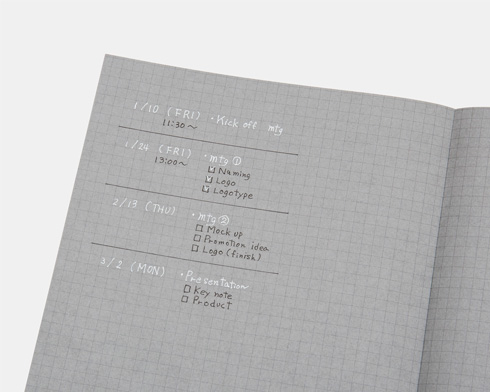 1/10 (FRI) ・Kick off mtg
11:30～
1/24 (FRI) ・mtg ①
13:00～ ☑ Naming
☑ Logo
☑ Logotype
2/13 (THU) ・mtg ②
☐ Mock up
☐ Promotion idea
☐ Logo (finish)
3/2 (MON) ・Presentation
☐ Key note
☐ Product